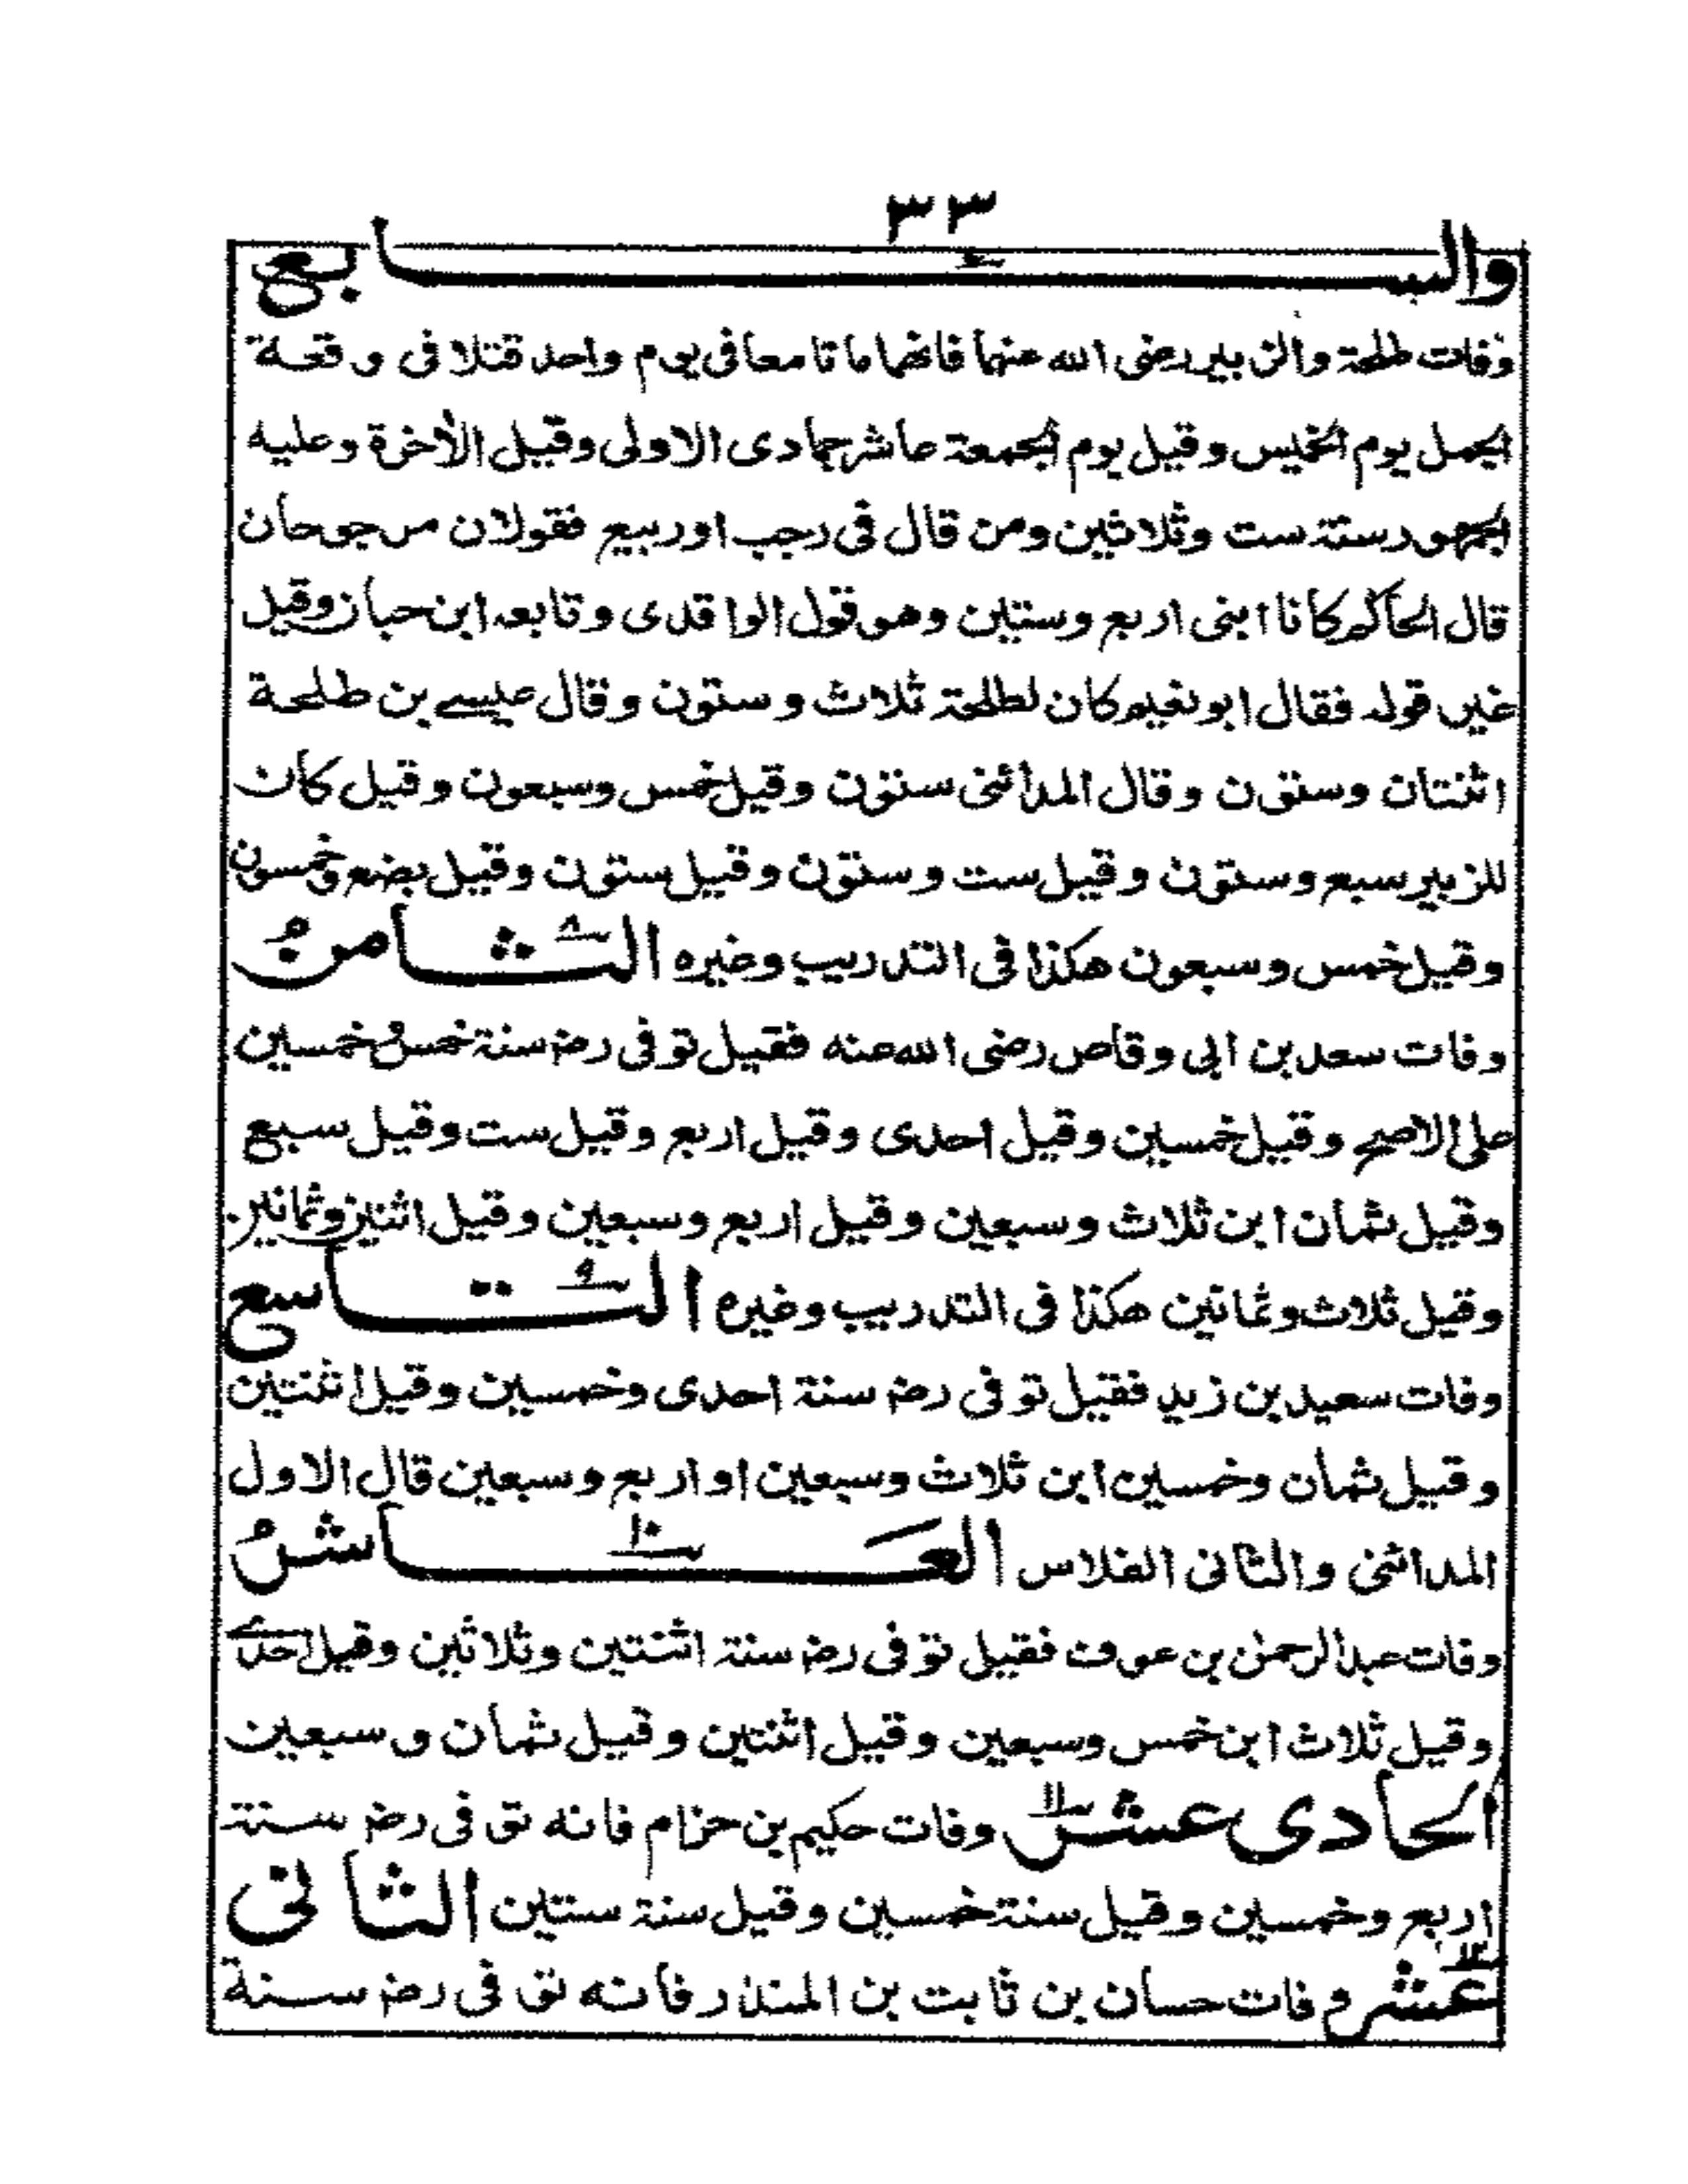 ٣٣
والسابع
وفات طلحة والزبير رضى الله عنهما فانهما ماتا معا فى يوم واحد قتلا فى وقعة
الجمل يوم الخميس وقيل يوم الجمعة عاشر جمادى الاولى وقيل الأخرة وعليه
الجمهور سنة ست وثلاثين ومن قال فى رجب او ربيع فقولان مرجوحان
قال الحاكم كانا ابنى اربع وستين وهو قول الواقدى وتابعه ابن حبان وقيل
غير قوله فقال ابو نعيم كان لطلحة ثلاث وستون وقال عيسے بن طلحة
اثنتان وستون وقال المدائنى ستون وقيل خمس وسبعون وقيل كان
للزبير سبع وستون وقيل ست وستون وقيل ستون وقيل بضع وخمسون
وقيل خمس وسبعون هكذا فى التدريب وغيره الثامن ٨
وفات سعد بن ابى وقاص رضى الله عنه فقيل توفى رضـ سنة خمس وخمسين
على الاصح وقيل خمسين وقيل احدى وقيل اربع وقيل ست وقيل سبع
وقيل ثمان ابن ثلاث وسبعين وقيل اربع وسبعين وقيل اثنين وثمانين
وقيل ثلاث وثمانين هكذا فى التدريب وغيره التاسع ٩
وفات سعيد بن زيد فقيل توفى رضـ سنة احدى وخمسين وقيل اثنتين
وقيل ثمان وخمسين ابن ثلاث وسبعين او اربع وسبعين قال الاول
المدائنى والثانى الفلاس العاشر ١٠
وفات عبد الرحمن بن عوف فقيل توفى رضـ سنة اثنتين وثلاثين وقيل احدے
وقيل ثلاث ابن خمس وسبعين وقيل اثنتين وقيل ثمان وسبعين
الحادى عشر ١١ وفات حكيم بن حزام فانه توفى رضـ سنة
اربع وخمسين وقيل سنة خمسين وقيل سنة ستين الثانى
عشر ١٢ وفات حسان بن ثابت بن المنذر فانه توفى رضـ سنة